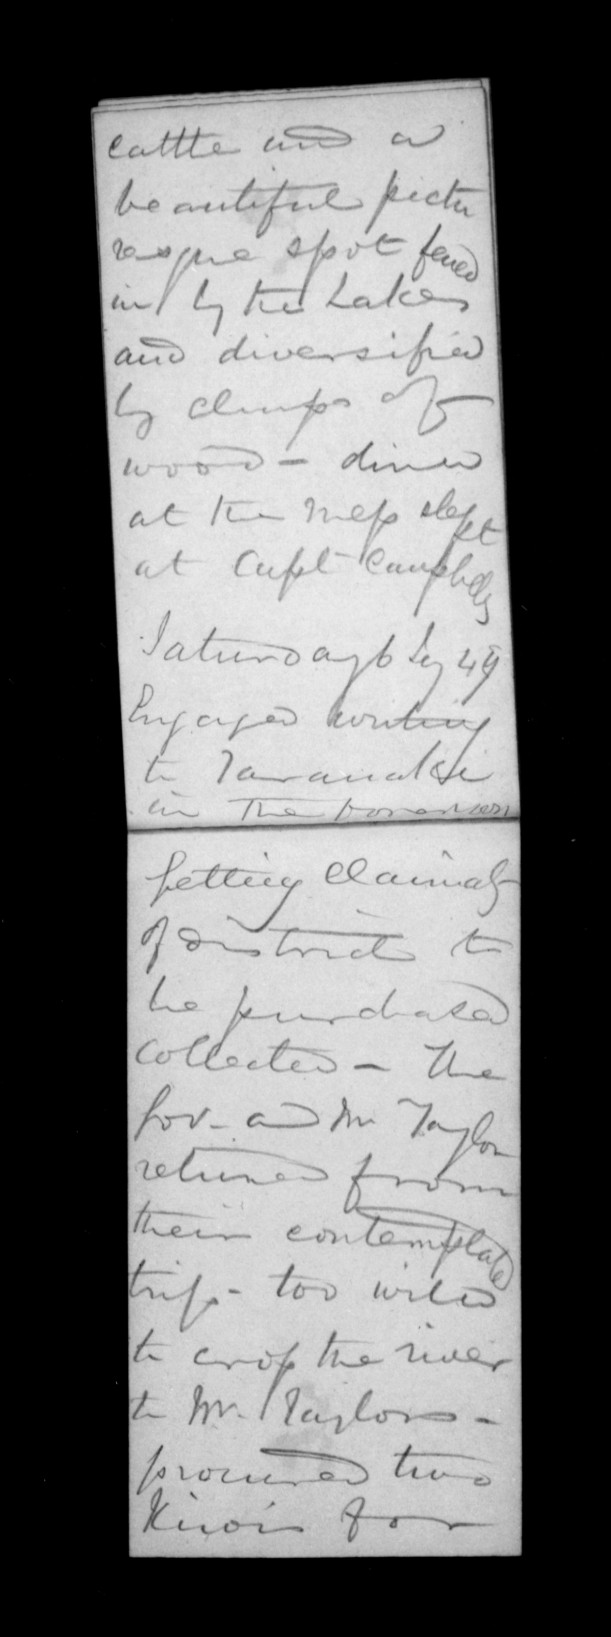 cattle and a
beautiful pictu
resque spot fenced
in by the Lakes
and diversified
by clumps of
wood - dined
at the Mess slept
at Capt Campbells
Saturday 6 49
Engaged writing
to Taranaki
in the
getting Claimants
of districts to
be purchased
collected - The
Gov. and Mr Taylor
returned from
their contemplated
trip - too wild
to cross the river
to Mr. Taylors -
procured two
Kiwis for